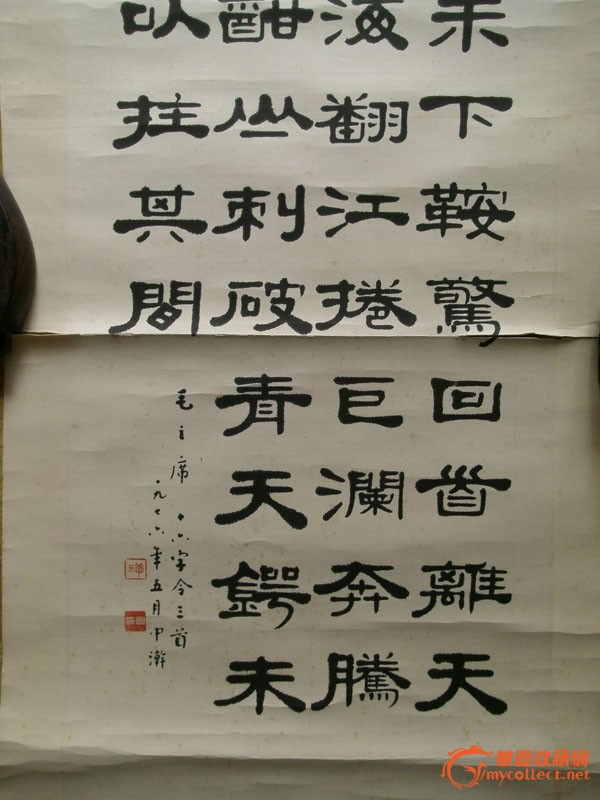 未下鞍驚回首離天
海翻江捲巨瀾奔騰
酣山刺破青天鍔未
以拄其間
毛主席十六字令三首
一九七六年五月中澣
華夏收藏網
mycollect.net